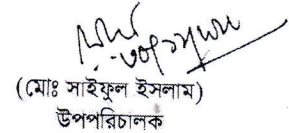 (মোঃ সাইফুল ইসলাম)
উপপরিচালক